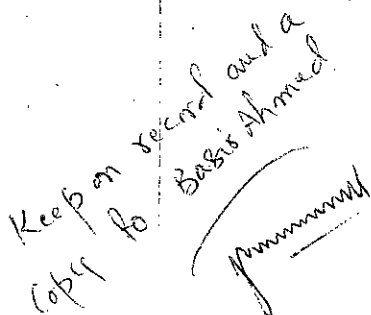 Keep on record and a
copy to Basir Ahmed